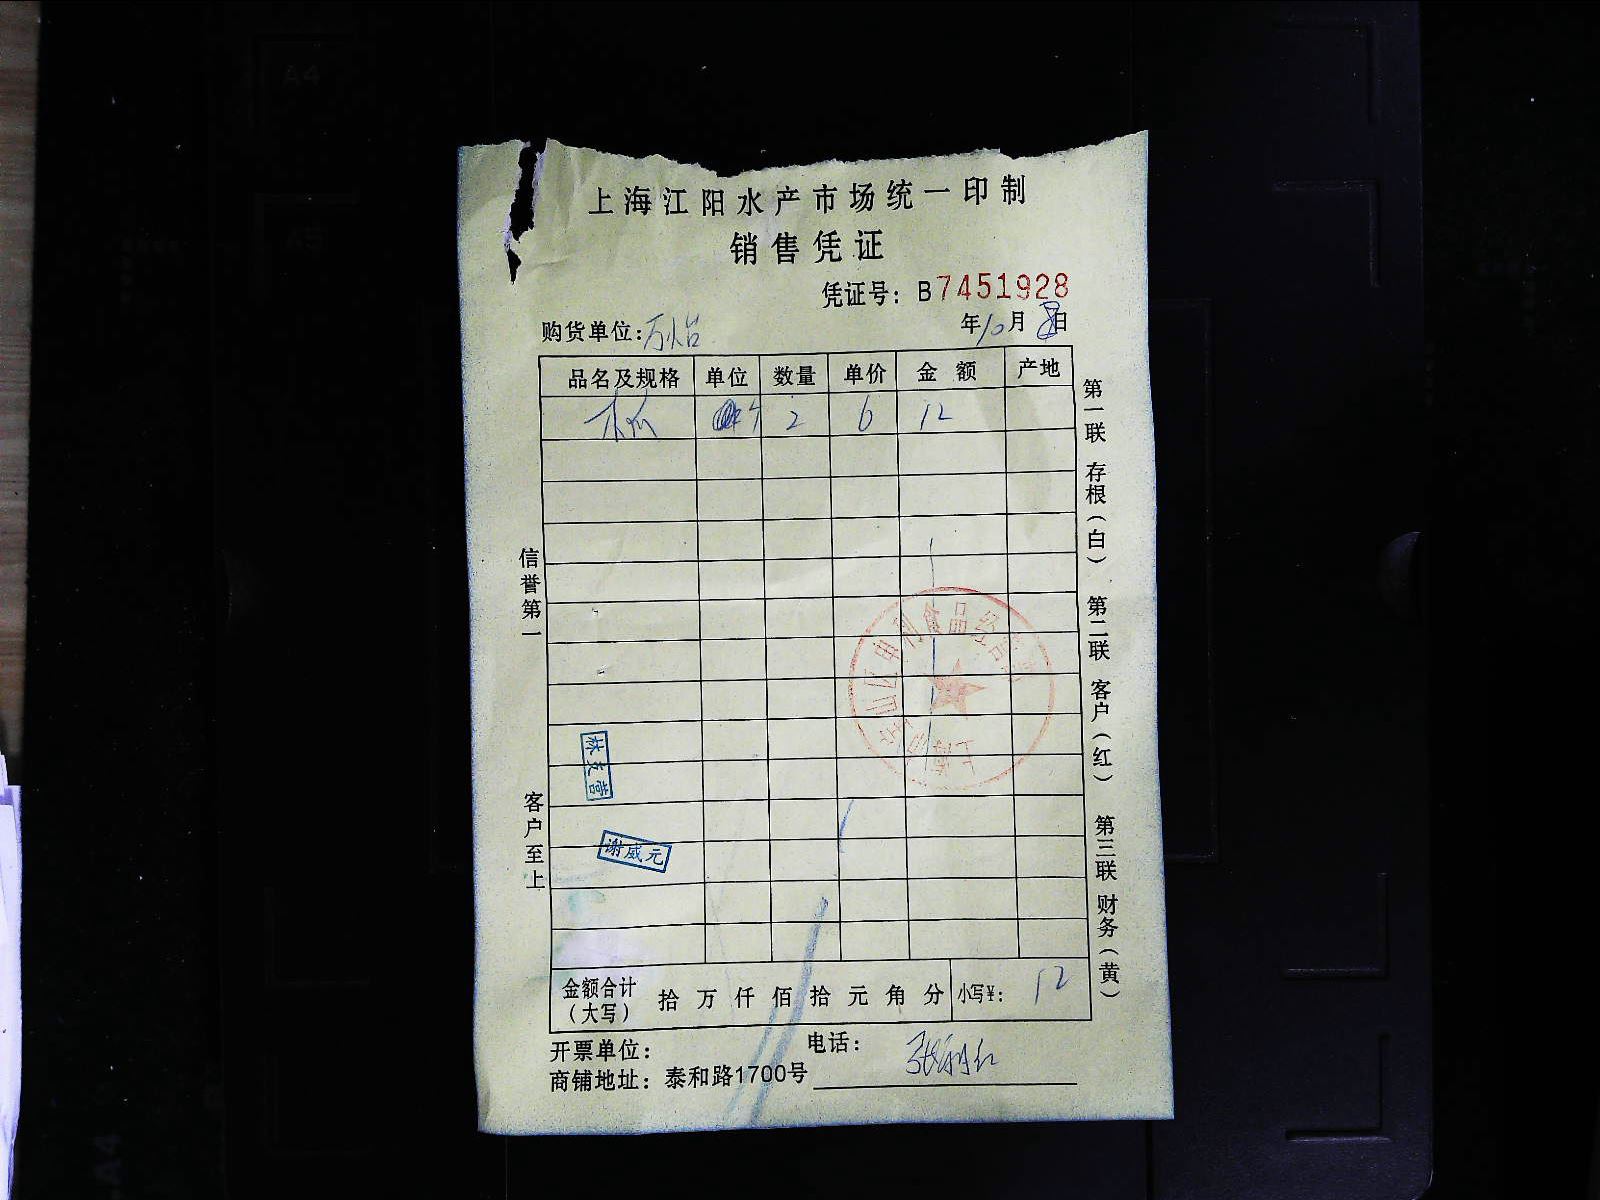 上海江阳水产市场统一印制
销售凭证
凭证号：B7451928
购货单位：万怡
年10月8日
品名及规格 单位 数量 单价 金额 产地
木瓜 个 2 6 12
信誉第一
客户至上
第一联 存根（白） 第二联 客户（红） 第三联 财务（黄）
林友营
谢威元
金额合计（大写） 拾 万 仟 佰 拾 元 角 分 小写¥：12
开票单位： 电话：
商铺地址：泰和路1700号
A4
A5
A4